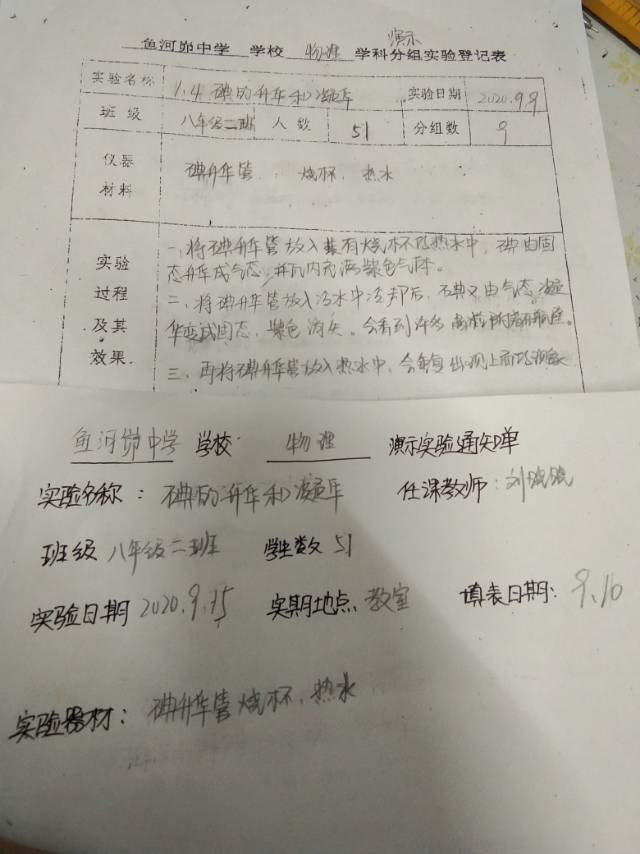 演示
鱼河峁中学 学校 物理 学科分组实验登记表
实验名称 1.4 碘的升华和凝华 实验日期 2020.9.9
班级 八年级二班 人数 51 分组数 9
仪器材料 碘升华管、烧杯、热水
实验过程及其效果
一、将碘升华管放入装有烧杯的热水中,碘由固
态升华成气态,并瓦内充满紫色气体。
二、将碘升华管放入冷水中冷却后,碘又由气态凝
华变成固态,紫色消失。会看到许多
三、再将碘升华管放入热水中,会重复出现上面的现象
鱼河峁中学 学校 物理 演示实验通知单
实验名称:碘的升华和凝华 任课教师:刘
班级 八年级二班 学生数 51
实验日期 2020.9.15 实期地点、教室 填表日期:9.16
实验器材:碘升华管 烧杯、热水